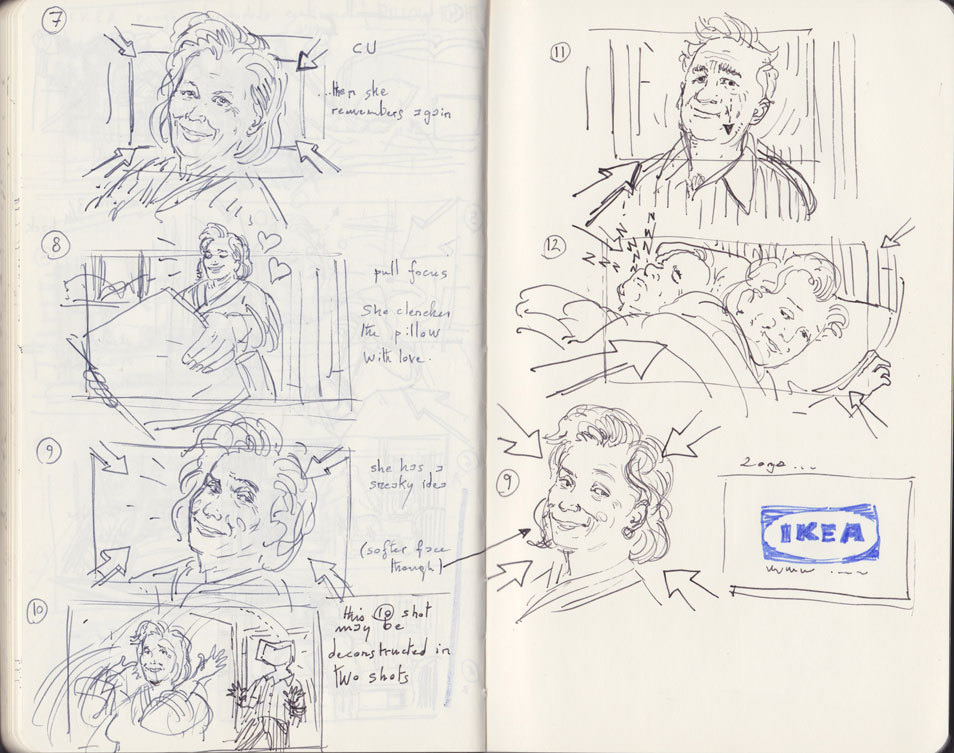 7
CU
...then she
remembers again
8
pull focus
She clenches
the pillow
with love.
9
she has a
sneaky idea
(softer face
though)
10
this 10 shot
may be
deconstructed in
two shots
11
12
z z z z z z z z
9
Logo ...
IKEA
www ....